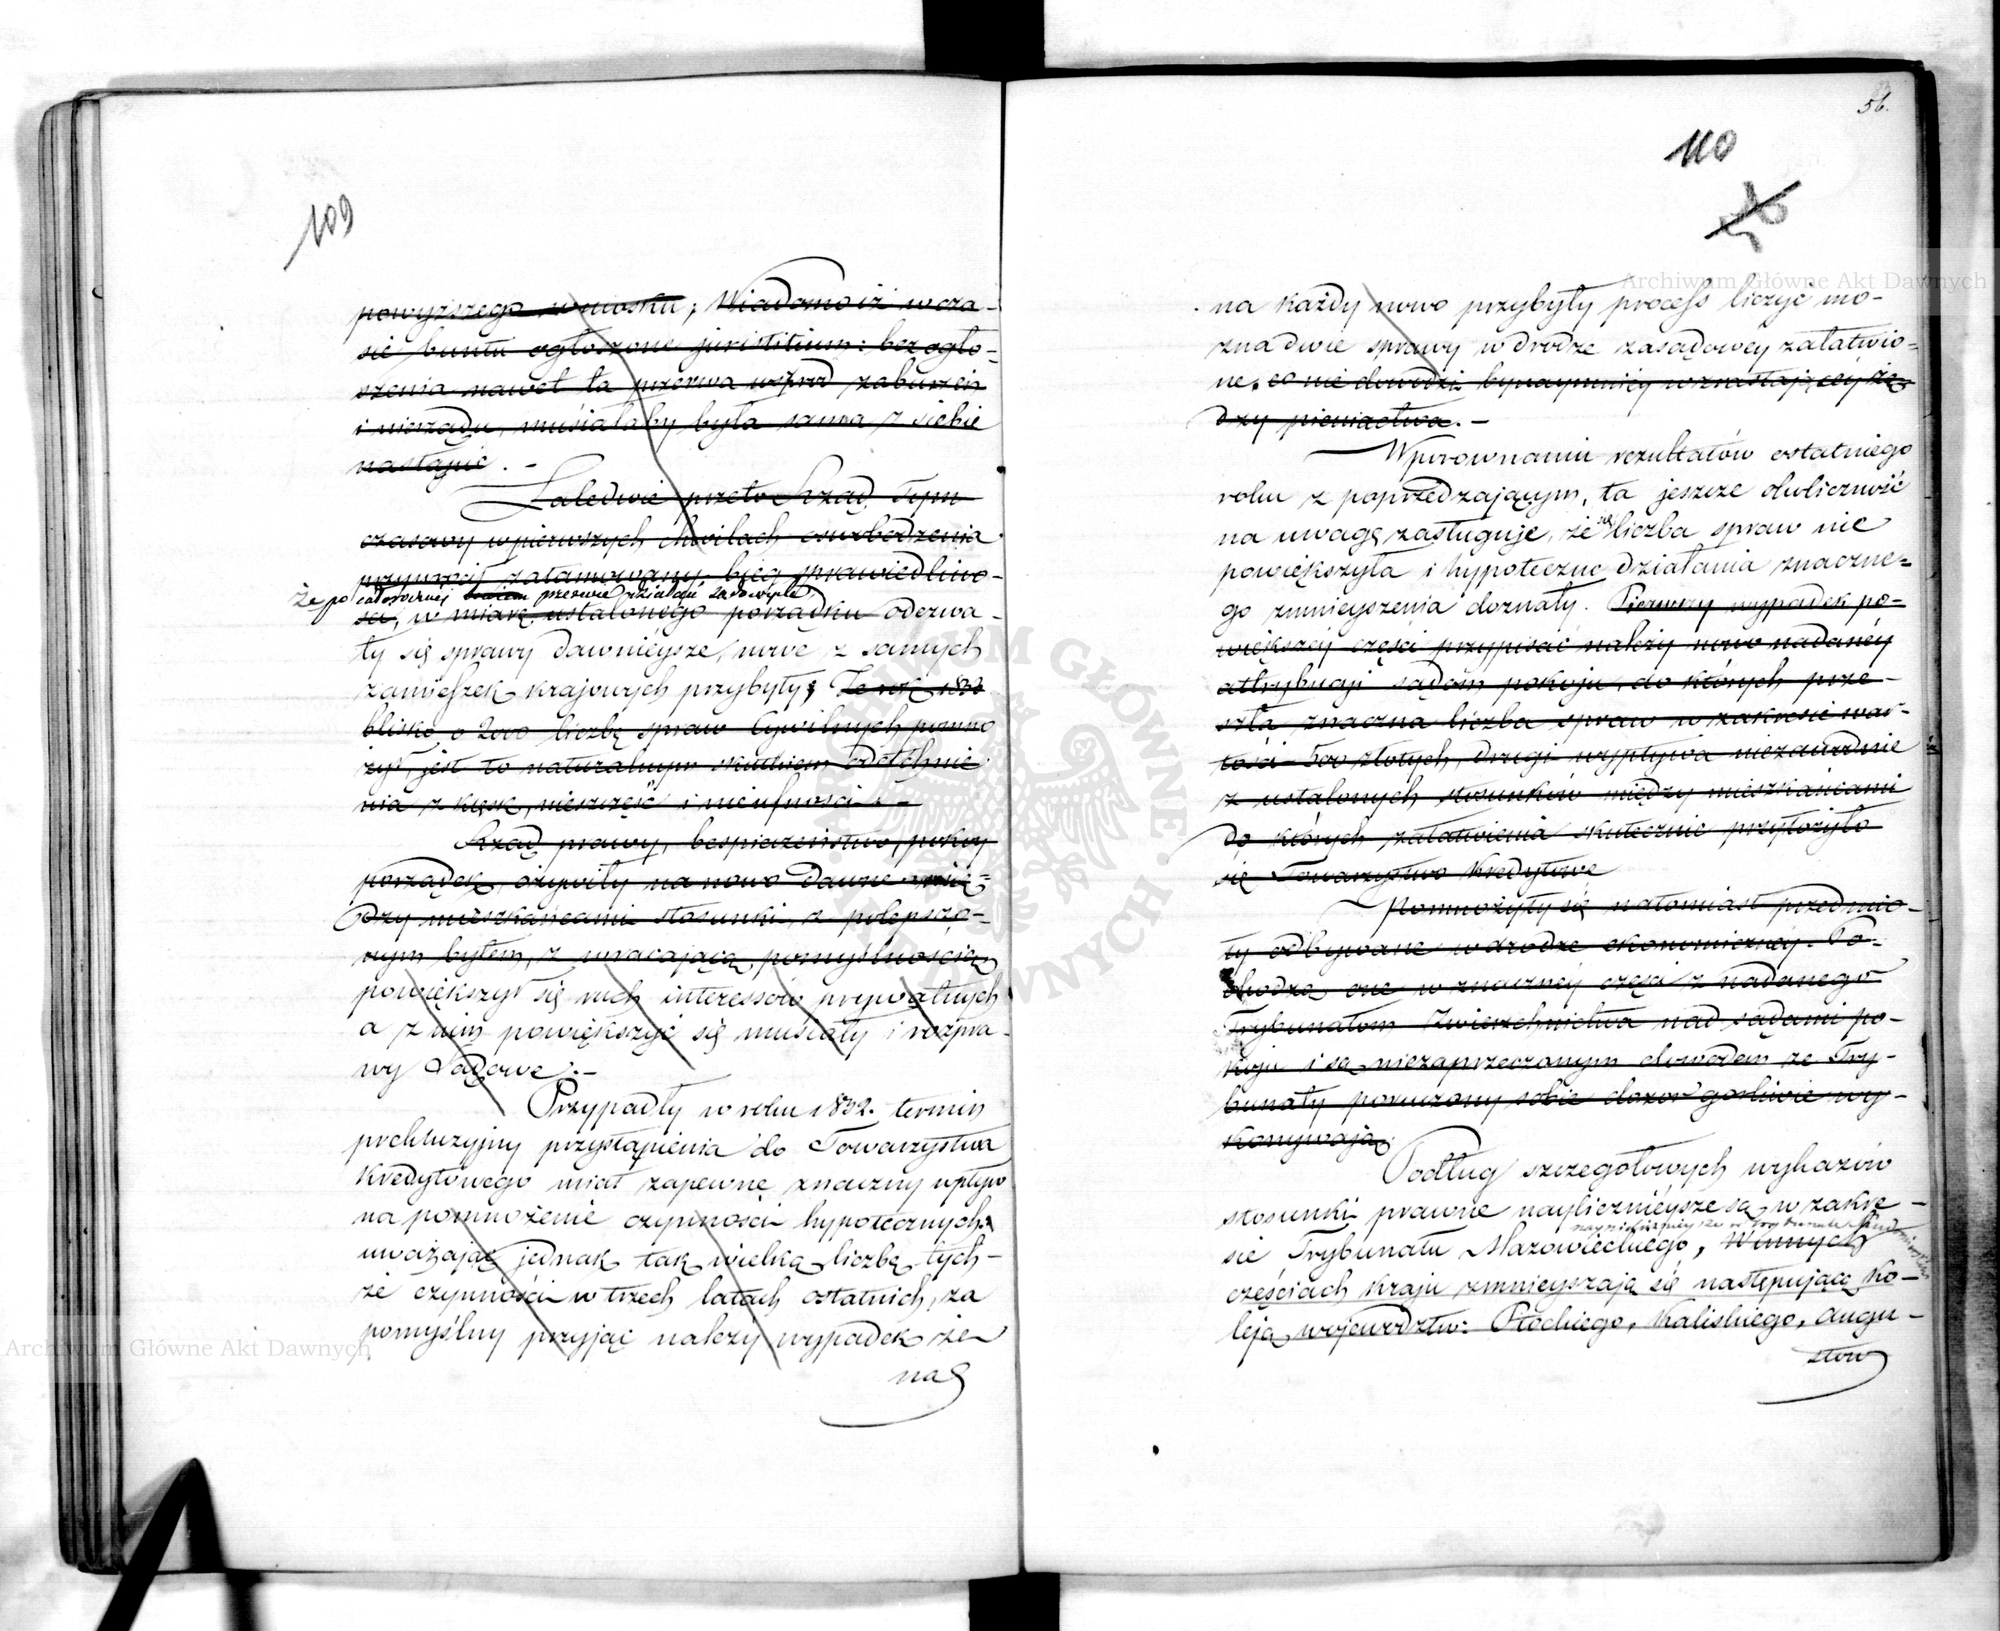 109
powyższego wniosku; Wiadomo iż w cza-
sie buntu ogłoszone juristitium: bez ogło-
szenia nawet ta przerwa wśrod zaburzeń
i nierządu, musiałaby była sama z siebie
nastąpić. -
Zaledwie przeto Rząd Tym
czasowy w pierwszych chwilach oswobodzenia
przywrócił zatamowany bieg sprawiedliwo-
że po całorocznej przerwie działań sądowych
sci, w miarę ustalonego porządku odezwa-
ły się sprawy dawniéysze, nowe z samych
zamieszek krajowych przybyły; Że rok 1832
blisko o 2000 liczbę spraw Cywilnych pomno
żył, jest to naturalnym skutkiem odetchnie
nia z klęsk, nieszczęść i nieufności. -
Rząd prawy, bespieczeństwo, pokoy
porządek, ożywiły na nowo dawne mię-
dzy mieszkańcami stosunki, z polepszo-
nym bytem, z wracającą pomyślnością
powiększył się ruch interessow prywatnych
a z nim powiększyć się musiały i rozpra-
wy Sądowe. -
Przypadły w roku 1832. termin
prekluzyjny przystąpienia do Towarzystwa
Kredytowego miał zapewne znaczny wpływ
na pomnożenie czynności hypotecznych
uważając jednak tak wielką liczbę tych-
że czynności w trzech latach ostatnich, za
pomyślny przyjąć należy wypadek że
na
56.
110
na każdy nowo przybyły process liczyć mo-
zna dwie sprawy w drodze zasądowéy załatwio-
ne. co nie dowodzi bynaymniéy wzrastającéy żą-
dzy pieniactwa. -
W porownaniu rezultatów ostatniego
roku z poprzedzającym, ta jeszcze okoliczność
na uwagę zasługuje, że się liczba spraw nie
powiększyła i hypoteczne działania znaczne-
go zmnieyszenia doznały. Pierwszy wypadek po-
większéy części przypisać należy nowo nadanéy
attrybucyi sądom pokoju, do których prze-
szła znaczna liczba spraw w zakresie war-
tości 500 złotych, drugi wypływa niezawodnie
z ustalonych stosunków między mieszkańcami
do których załatwienia skutecznie przyłożyło
się Towarzystwo Kredytowe
Pomnożyły się natomiast przedmio-
ty odbywane w drodze ekonomicznéy. Po-
chodzą one w znacznéy części z nadanego
Trybunałom Zwierzchnictwa nad sądami po-
koju i są niezaprzeczonym dowodem ze Try-
bunały poruczony sobie dozor gorliwie wy-
konywają.
Podług szczegołowych wykazów
stosunki prawne nayliczniéysze są w zakre-
sie Trybunału Mazowieckiego, W innych
częściach kraju zmnieyszają się następującą ko-
leją wojewodztw: Płockiego, Kaliskiego, Augu-
stow
Archiwum Główne Akt Dawnych
Archiwum Główne Akt Dawnych
ARCHIWUM GŁÓWNE AKT DAWNYCH